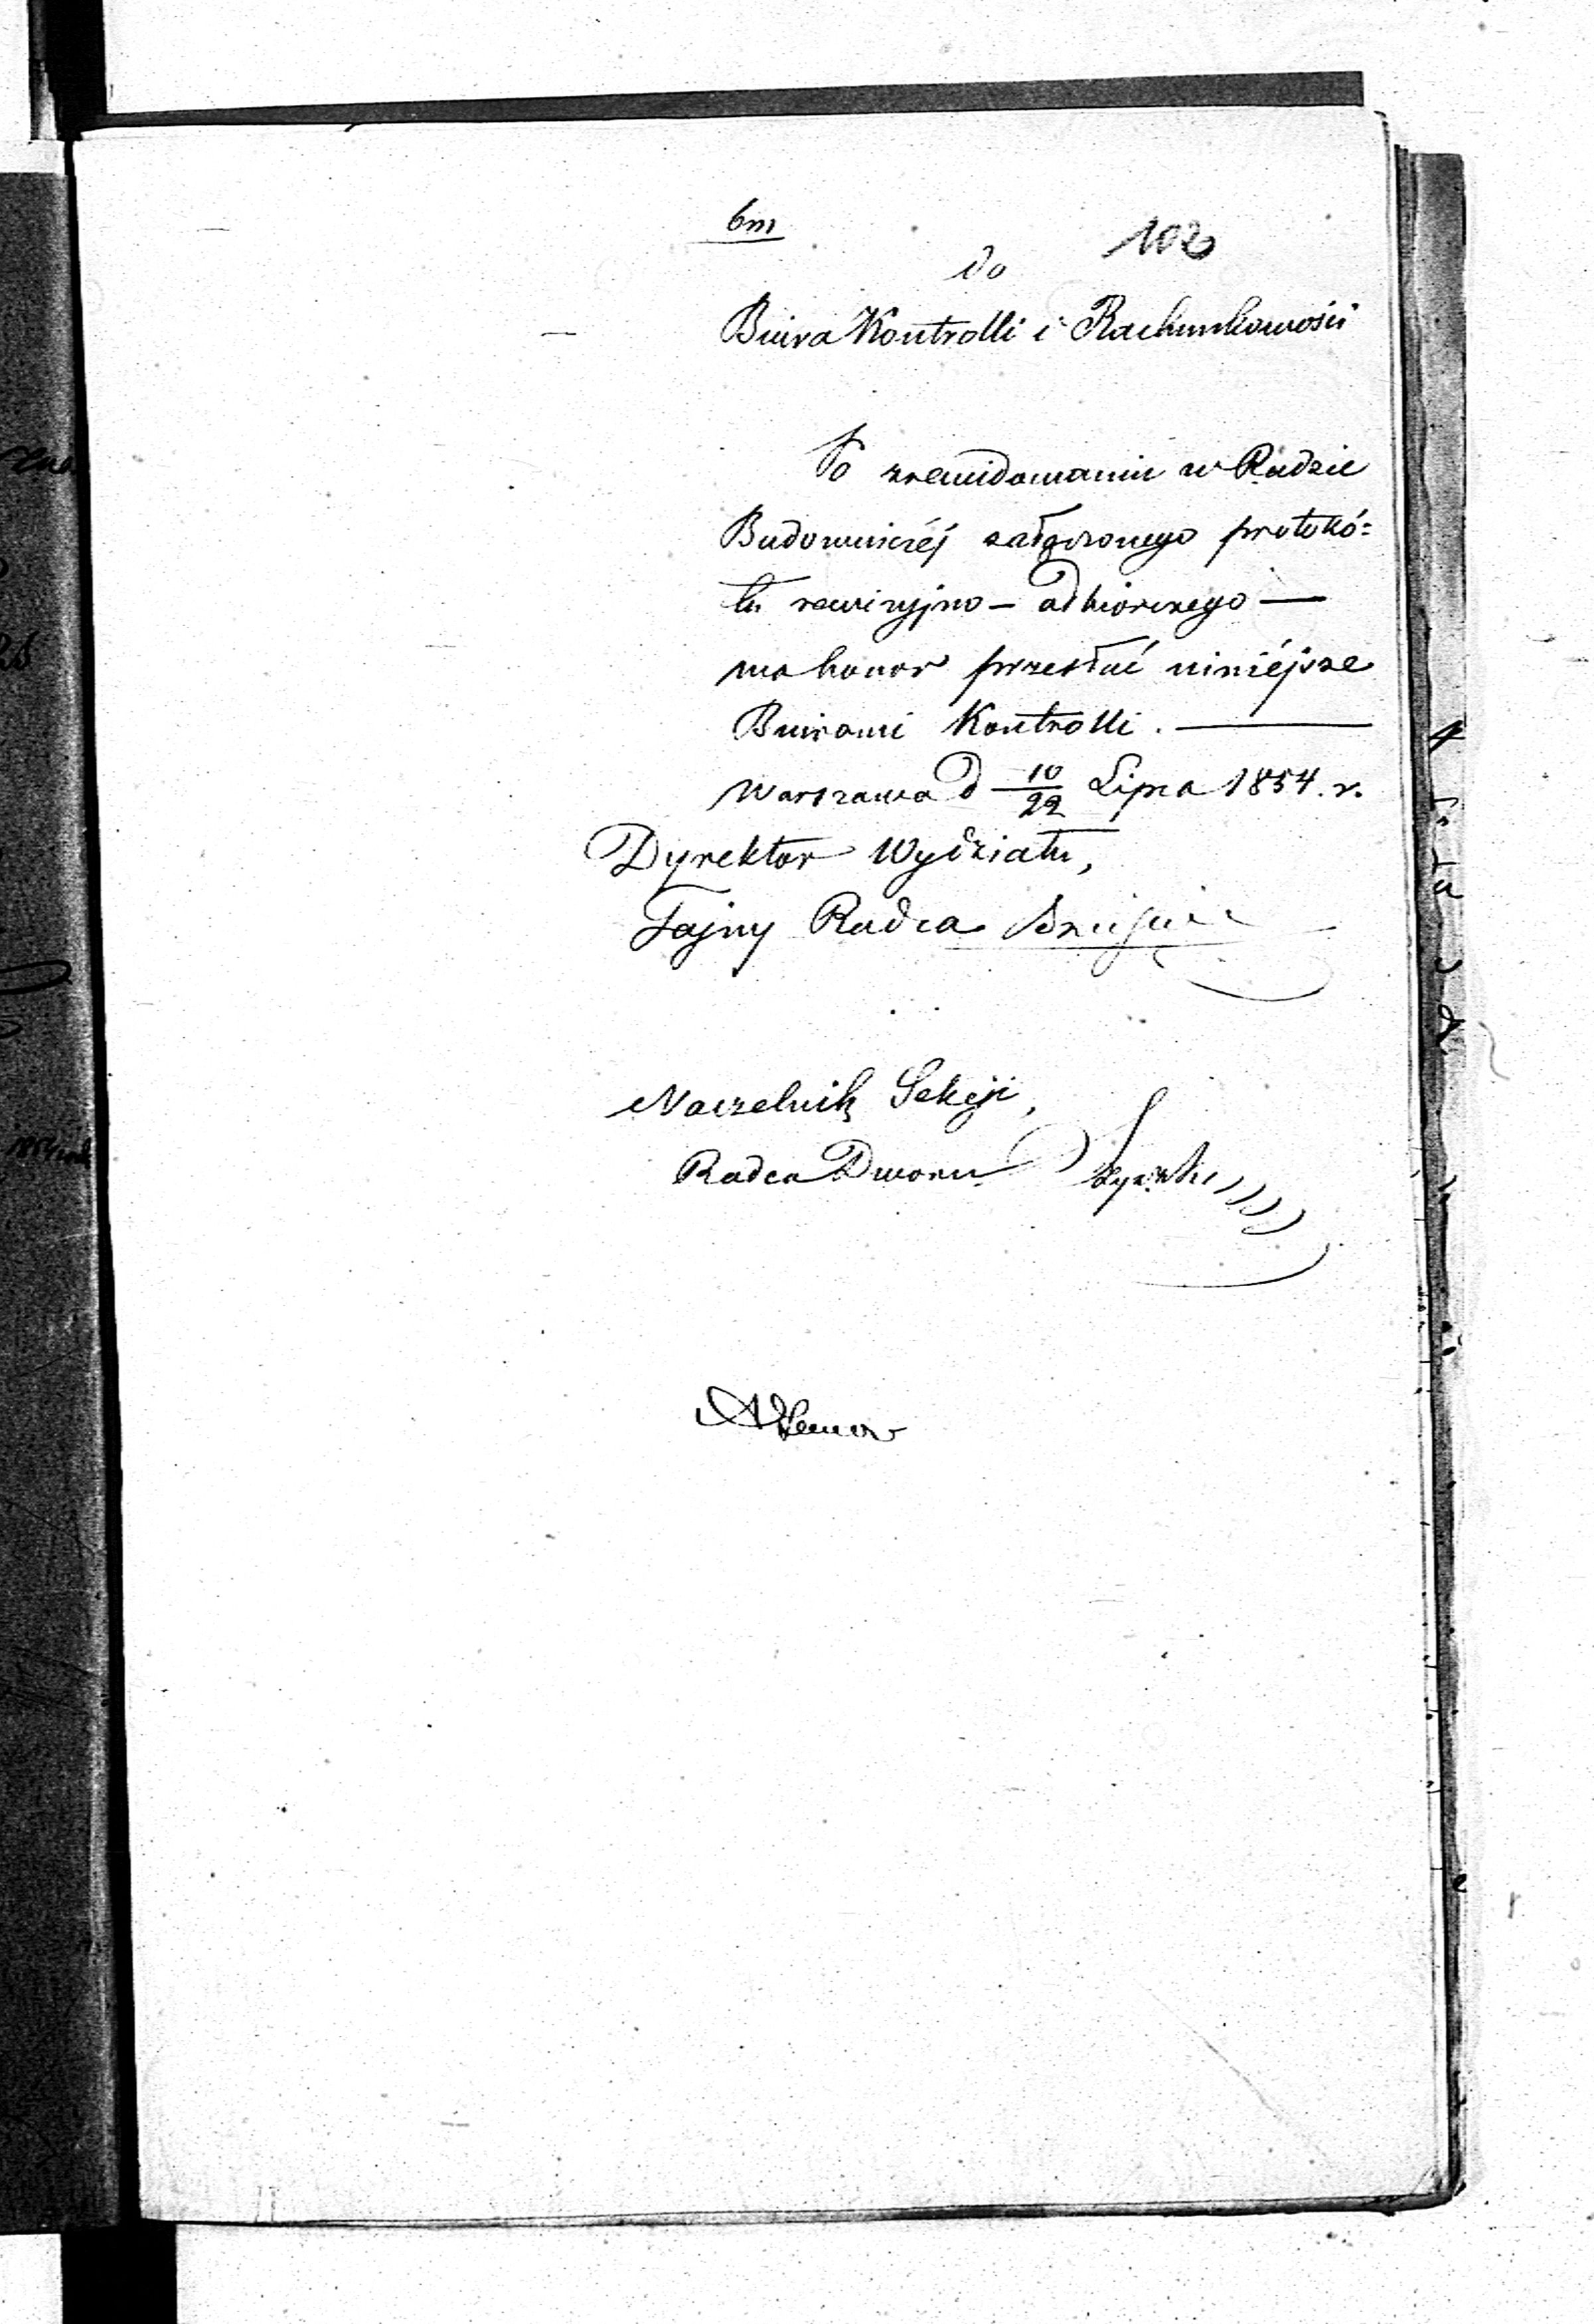 bm
102
do
Biura Kontrolli i Rachunkowości
Po zrewidowaniu w Radzie
Budowniczéj załączonego protokó=
łu rewizyjno – odbiorczego —
ma honor przesłać niniéjsze
Biurowi Kontrolli. —
Warszawa d 10/22 Lipca 1854. r.
Dyrektor Wydziału,
Tajny Radca
Naczelnik Sekcji,
Radca Dworu